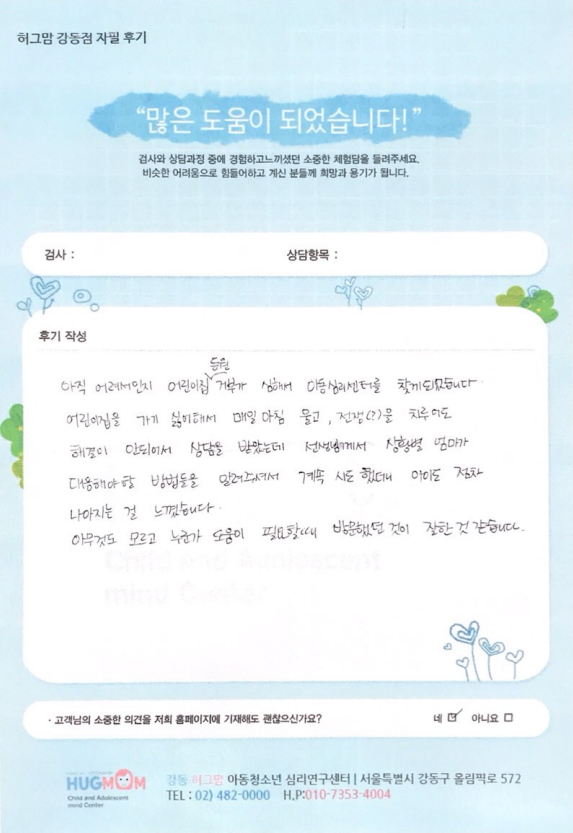 허그맘 강동점 자필 후기
“많은 도움이 되었습니다!”
검사와 상담과정 중에 경험하고느끼셨던 소중한 체험담을 들려주세요.
비슷한 어려움으로 힘들어하고 계신 분들께 희망과 용기가 됩니다.
검사 : 상담항목 :
후기 작성
등원
아직 어려서인지 어린이집 거부가 심해서 아동심리센터를 찾게되었습니다.
어린이집을 가기 싫어해서 매일아침 울고, 전쟁(?)을 치루어도
해결이 안되어서 상담을 받았는데 선생님께서 상황별 엄마가
대응해야할 방법들을 알려주셔서 계속 시도 했더니 아이도 점차
나아지는 걸 느꼈습니다.
아무것도 모르고 누군가 도움이 필요할때 방문했던 것이 잘한 것 같습니다.
Child and Adolescent
mind Center
· 고객님의 소중한 의견을 저희 홈페이지에 기재해도 괜찮으신가요? 네 ☑ 아니요 □
HUGMOM
Child and Adolescent
mind Center
강동 허그맘 아동청소년 심리연구센터 | 서울특별시 강동구 올림픽로 572
TEL : 02) 482-0000 H.P:010-7353-4004